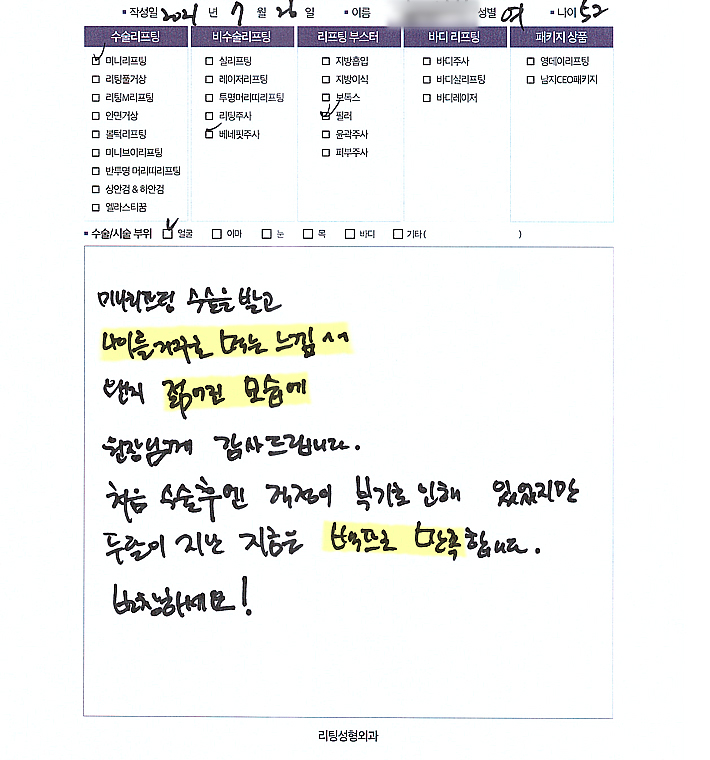 ▪ 작성일 2021 년 7 월 26 일 ▪ 이름 성별 여 ▪ 나이 52
수술리프팅 비수술리프팅 리프팅 부스터 바디 리프팅 패키지 상품
☑ 미니리프팅 ☐ 실리프팅 ☐ 지방흡입 ☐ 바디주사 ☐ 영데이리프팅
☐ 리팅풀거상 ☐ 레이저리프팅 ☐ 지방이식 ☐ 바디실리프팅 ☐ 남자CEO패키지
☐ 리팅M리프팅 ☐ 투명머리띠리프팅 ☐ 보톡스 ☐ 바디레이저
☐ 안면거상 ☐ 리팅주사 ☑ 필러
☐ 볼턱리프팅 ☑ 베네핏주사 ☐ 윤곽주사
☐ 미니브이리프팅 ☐ 피부주사
☐ 반투명 머리띠리프팅
☐ 상안검 & 하안검
☐ 엘라스티꿈
▪ 수술/시술 부위 ☑ 얼굴 ☐ 이마 ☐ 눈 ☐ 목 ☐ 바디 ☐ 기타( )
미니리프팅 수술을 받고
나이를 거꾸로 먹는 느낌 ^^
왠지 젊어진 모습에
원장님께 감사드립니다.
처음 수술후엔 걱정이 붓기로 인해 있었지만
두달이 지난 지금은 백프로 만족합니다.
번창하세요!
리팅성형외과